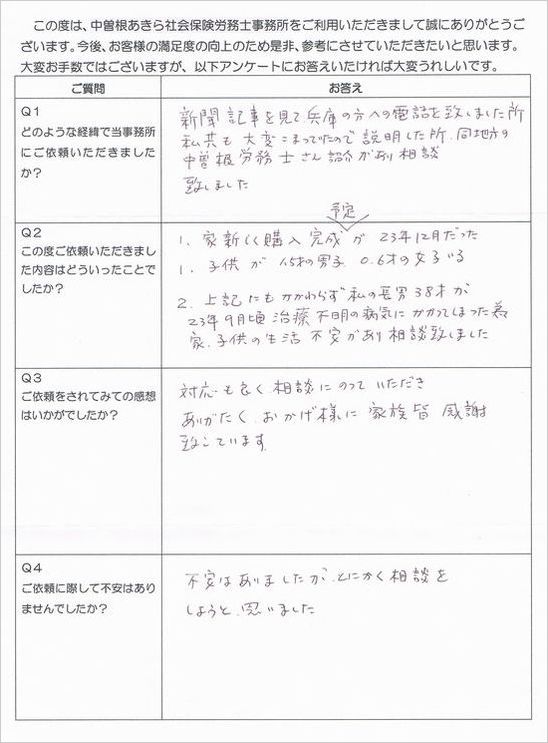 この度は、中曽根あきら社会保険労務士事務所をご利用いただきまして誠にありがとうご
ざいます。今後、お客様の満足度の向上のため是非、参考にさせていただきたいと思います。
大変お手数ではございますが、以下アンケートにお答えいたければ大変うれしいです。
ご質問
お答え
Q1
どのような経緯で当事務所
にご依頼いただきました
か?
新聞記事を見て兵庫の方への電話を致しました所
私共も大変こまっていたので説明した所、同地方の
中曽根労務士さん紹介があり相談
致しました
Q2
この度ご依頼いただきまし
た内容はどういったことで
したか?
予定
1、家新しく購入完成が23年12月だった
1、子供が 1.5才の男子、0.6才の女子いる
2、上記にもかかわらず私の長男38才が
23年9月頃治療不明の病気にかかってしまった為
家、子供の生活不安があり相談致しました
Q3
ご依頼をされてみての感想
はいかがでしたか?
対応も良く相談にのっていただき
ありがたくおかげ様に家族皆感謝
致しています
Q4
ご依頼に際して不安はあり
ませんでしたか?
不安はありましたが、とにかく相談を
しようと思いました